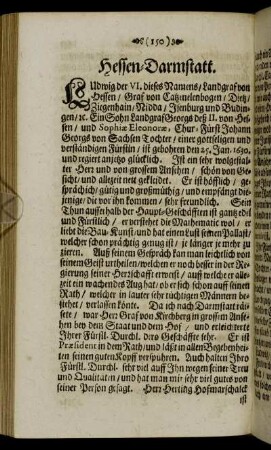 (150)
Hessen-Darmstatt.
LUdwig der VI. dieses Namens, Landgraf von
Hessen / Graf von Catzenelenbogen / Dietz /
Ziegenhain / Nidda / Isenburg und Budin-
gen / ꝛc. Ein Sohn Landgraf Georgs deß II. von Hes-
sen / und Sophiæ Eleonoræ, Chur-Fürst Johann
Georgs von Sachsen Tochter / einer gottseligen und
verständigen Fürstin / ist gebohren den 25. Jan. 1630.
und regiert anjetzo glücklich. Ist ein sehr wolgestal-
ter Herr und von grossem Ansehen / schön von Ge-
sicht / und allezeit nett gekleidet. Er ist höfflich / ge-
sprächich / gütig und großmüthig / und empfängt die-
jenige / die vor ihn kommen / sehr freundlich. Sein
Thun ausserhalb der Haupt-Geschäfften ist gantz edel
und Fürstlich / er verstehet die Mathematic wol / er
liebt die Bau-Kunst / und hat einen Lust seinen Pallast /
welcher schon prächtig genug ist / je länger je mehr zu
zieren. Auß seinem Gespräch kan man leichtlich von
seinem Geist urtheilen / welchen er noch besser in der Re-
gierung seiner Herrschafft erweist / auff welche er alle-
zeit ein wachendes Aug hat / ob er sich schon auff seinen
Rath / welcher in lauter sehr tüchtigen Männern be-
stehet / verlassen könte. Da ich nach Darmstatt räi-
sete / war Herr Graf von Kirchberg in grossem Anse-
hen bey dem Staat und dem Hof / und erleichterte
Ihrer Fürstl. Durchl. dero Geschäffte sehr. Er ist
Præsident in dem Rath / und läst in allen Begebenhei-
ten seinen guten Kopff verspühren. Auch halten Ihro
Fürstl. Durchl. sehr viel auff Ihn wegen seiner Treu
und Qualitäten / und hat man mir sehr viel gutes von
seiner Person gesagt. Herr Herting Hofmarschalck
ist